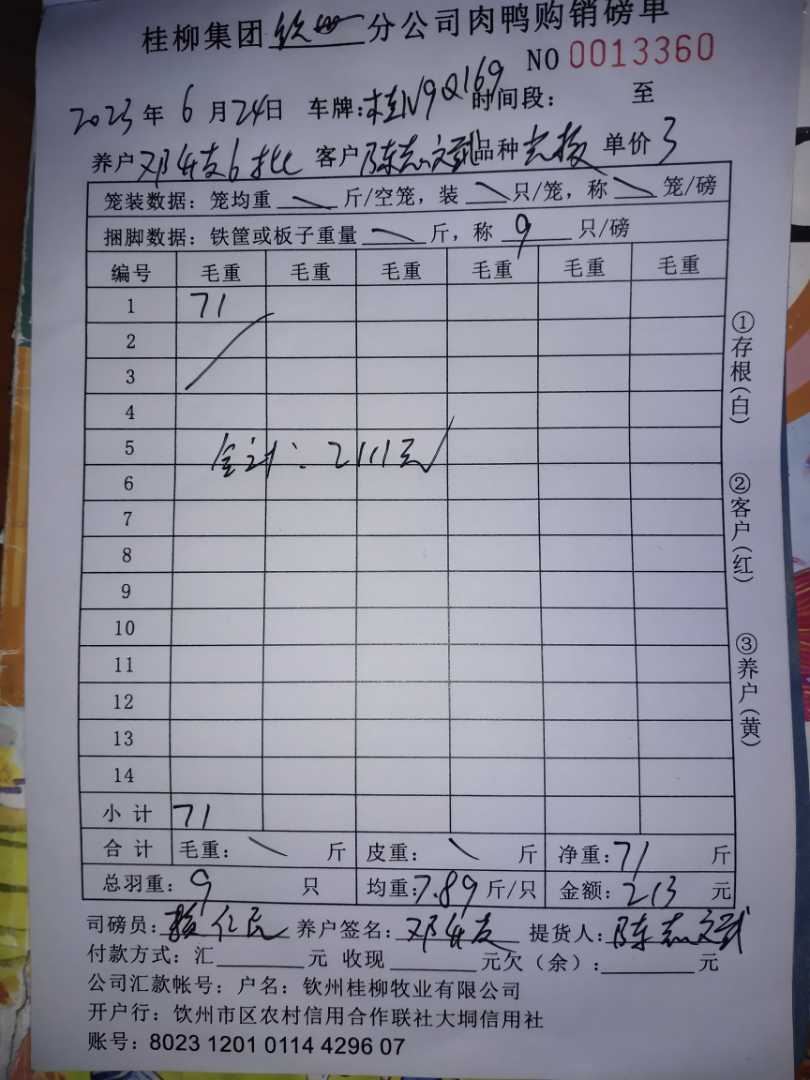 桂柳集团钦州分公司肉鸭购销磅单
NO 0013360
2023年6月24日 车牌:桂N9Q169 时间段: 至
养户 邓年友6批 客户 陈志斌 品种 单价 3
笼装数据: 笼均重 \ 斤/空笼, 装 \ 只/笼, 称 \ 笼/磅
捆脚数据: 铁筐或板子重量 \ 斤, 称 9 只/磅
编号 毛重 毛重 毛重 毛重 毛重 毛重
1 71
2
3
4
5
合计: 2111元
6
7
8
9
10
11
12
13
14
小计 71
合计 毛重: \ 斤 皮重: \ 斤 净重: 71 斤
总羽重: 9 只 均重: 7.89 斤/只 金额: 213 元
司磅员: 仁民 养户签名: 邓年友 提货人: 陈志斌
付款方式: 汇 元 收现 元欠(余): 元
公司汇款帐号: 户名: 钦州桂柳牧业有限公司
开户行: 饮州市区农村信用合作联社大垌信用社
账号: 8023 1201 0114 4296 07
①存根(白)
②客户(红)
③养户(黄)